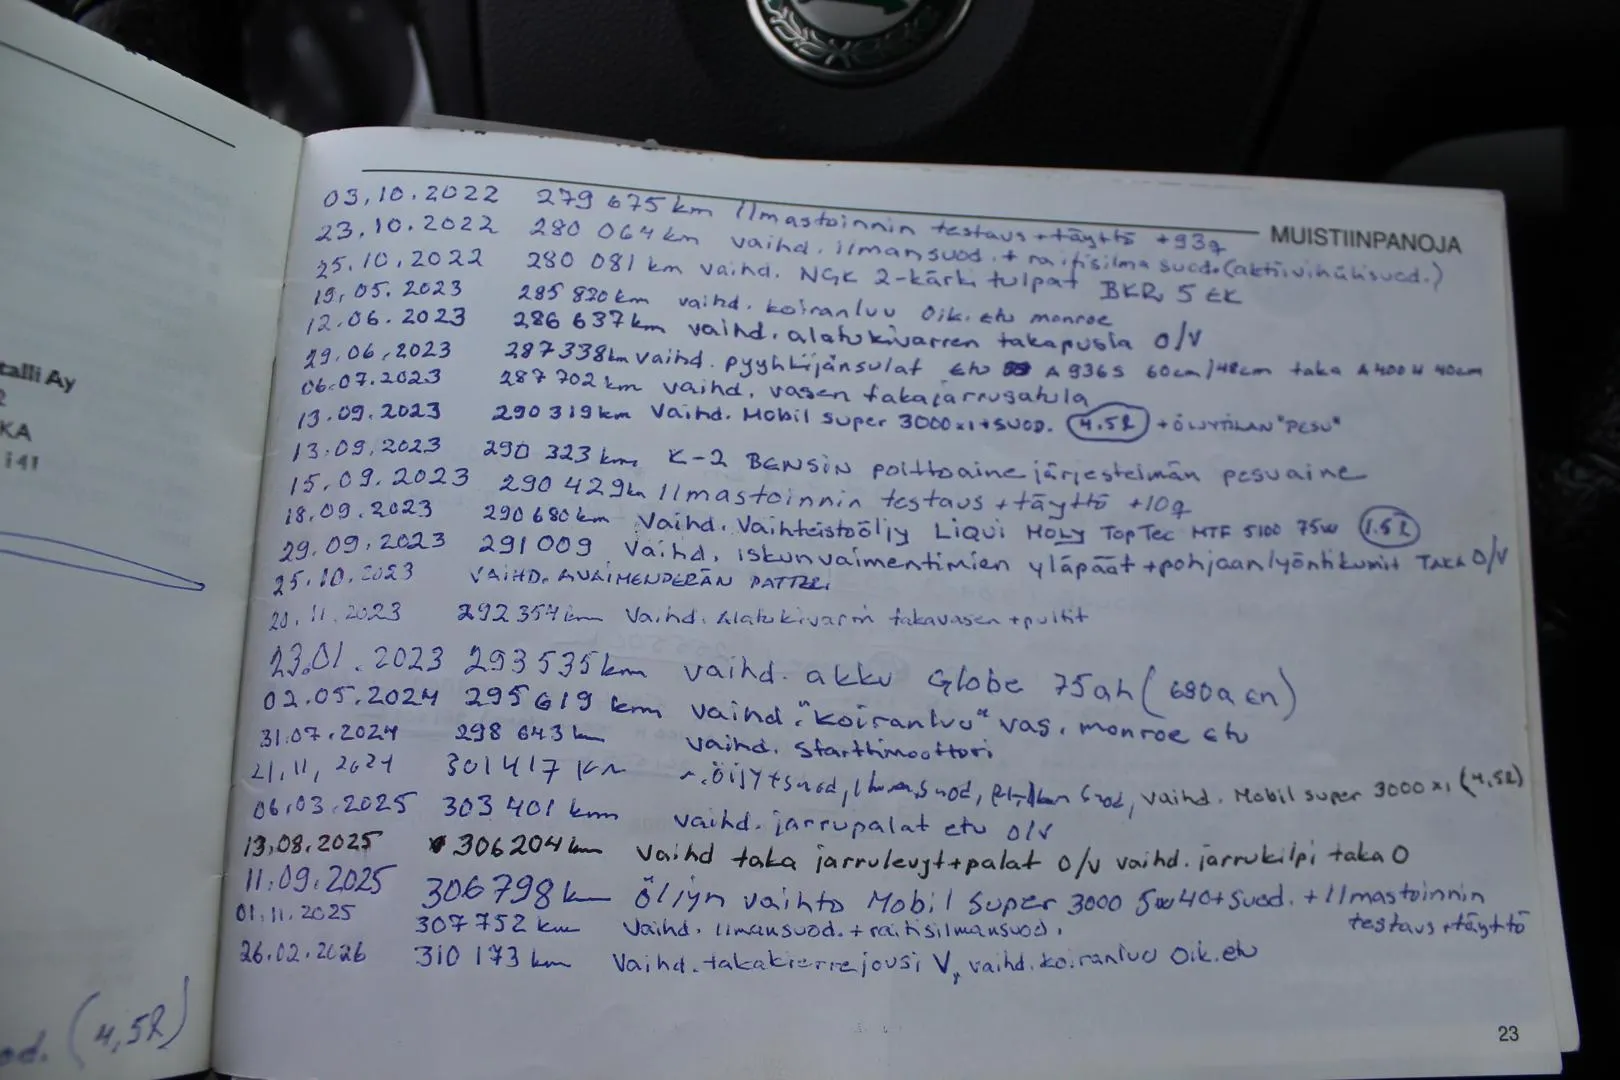 MUISTIINPANOJA
03.10.2022 279 675 km Ilmastoinnin testaus + täyttö +93g
23.10.2022 280 064 km vaihd. ilmansuod. + raitisilma suod. (aktiivihiilisuod.)
25.10.2022 280 081 km vaihd. NGK 2-kärki tulpat BKR 5 EK
19.05.2023 285 820 km vaihd. koiranluu Oik. etu monroe
12.06.2023 286 637 km vaihd. alatukivarren takapusla O/V
29.06.2023 287 338 km vaihd. pyyhkijänsulat etu A 936 S 60cm/48cm taka A 400 H 40cm
06.07.2023 287 702 km vaihd. vasen takajarrusatula
13.09.2023 290 319 km Vaihd. Mobil Super 3000 x1 + suod. (4.5l) + ÖLJYTILAN "PESU"
13.09.2023 290 323 km K-2 BENSIN polttoainejärjestelmän pesuaine
15.09.2023 290 429 km Ilmastoinnin testaus + täyttö +10g
18.09.2023 290 680 km Vaihd. Vaihteistoöljy LIQUI MOLY Top Tec MTF 5100 75W (1.5l)
29.09.2023 291 009 Vaihd. iskunvaimentimien yläpäät + pohjaanlyöntikumit TAKA O/V
25.10.2023 VAIHD. AVAIMENPERÄN PATTERI
20.11.2023 292 354 km Vaihd. Alatukivarren takavasen + pultit
23.01.2023 293 535 km vaihd. akku Globe 75ah (680a en)
02.05.2024 295 619 km vaihd. "koiranluu" vas. monroe etu
31.07.2024 298 643 km vaihd. starttimoottori
21.11.2024 301 417 km öljy+suod, Ilmansuod, suod, vaihd. Mobil super 3000 x1 (4,5l)
06.03.2025 303 401 km vaihd. jarrupalat etu o/v
13.08.2025 306 204 km Vaihd taka jarrulevyt+palat O/V vaihd. jarrukilpi taka O
11.09.2025 306 798 km Öljyn vaihto Mobil Super 3000 5w40+Suod. + Ilmastoinnin
testaus + täyttö
01.11.2025 307 752 km Vaihd. ilmansuod. + raitisilmansuod.
26.02.2026 310 173 km Vaihd. takakierrejousi V, vaihd. koiranluu Oik. etu
23
talli Ay
2
KA
i 41
od. (4,5l)